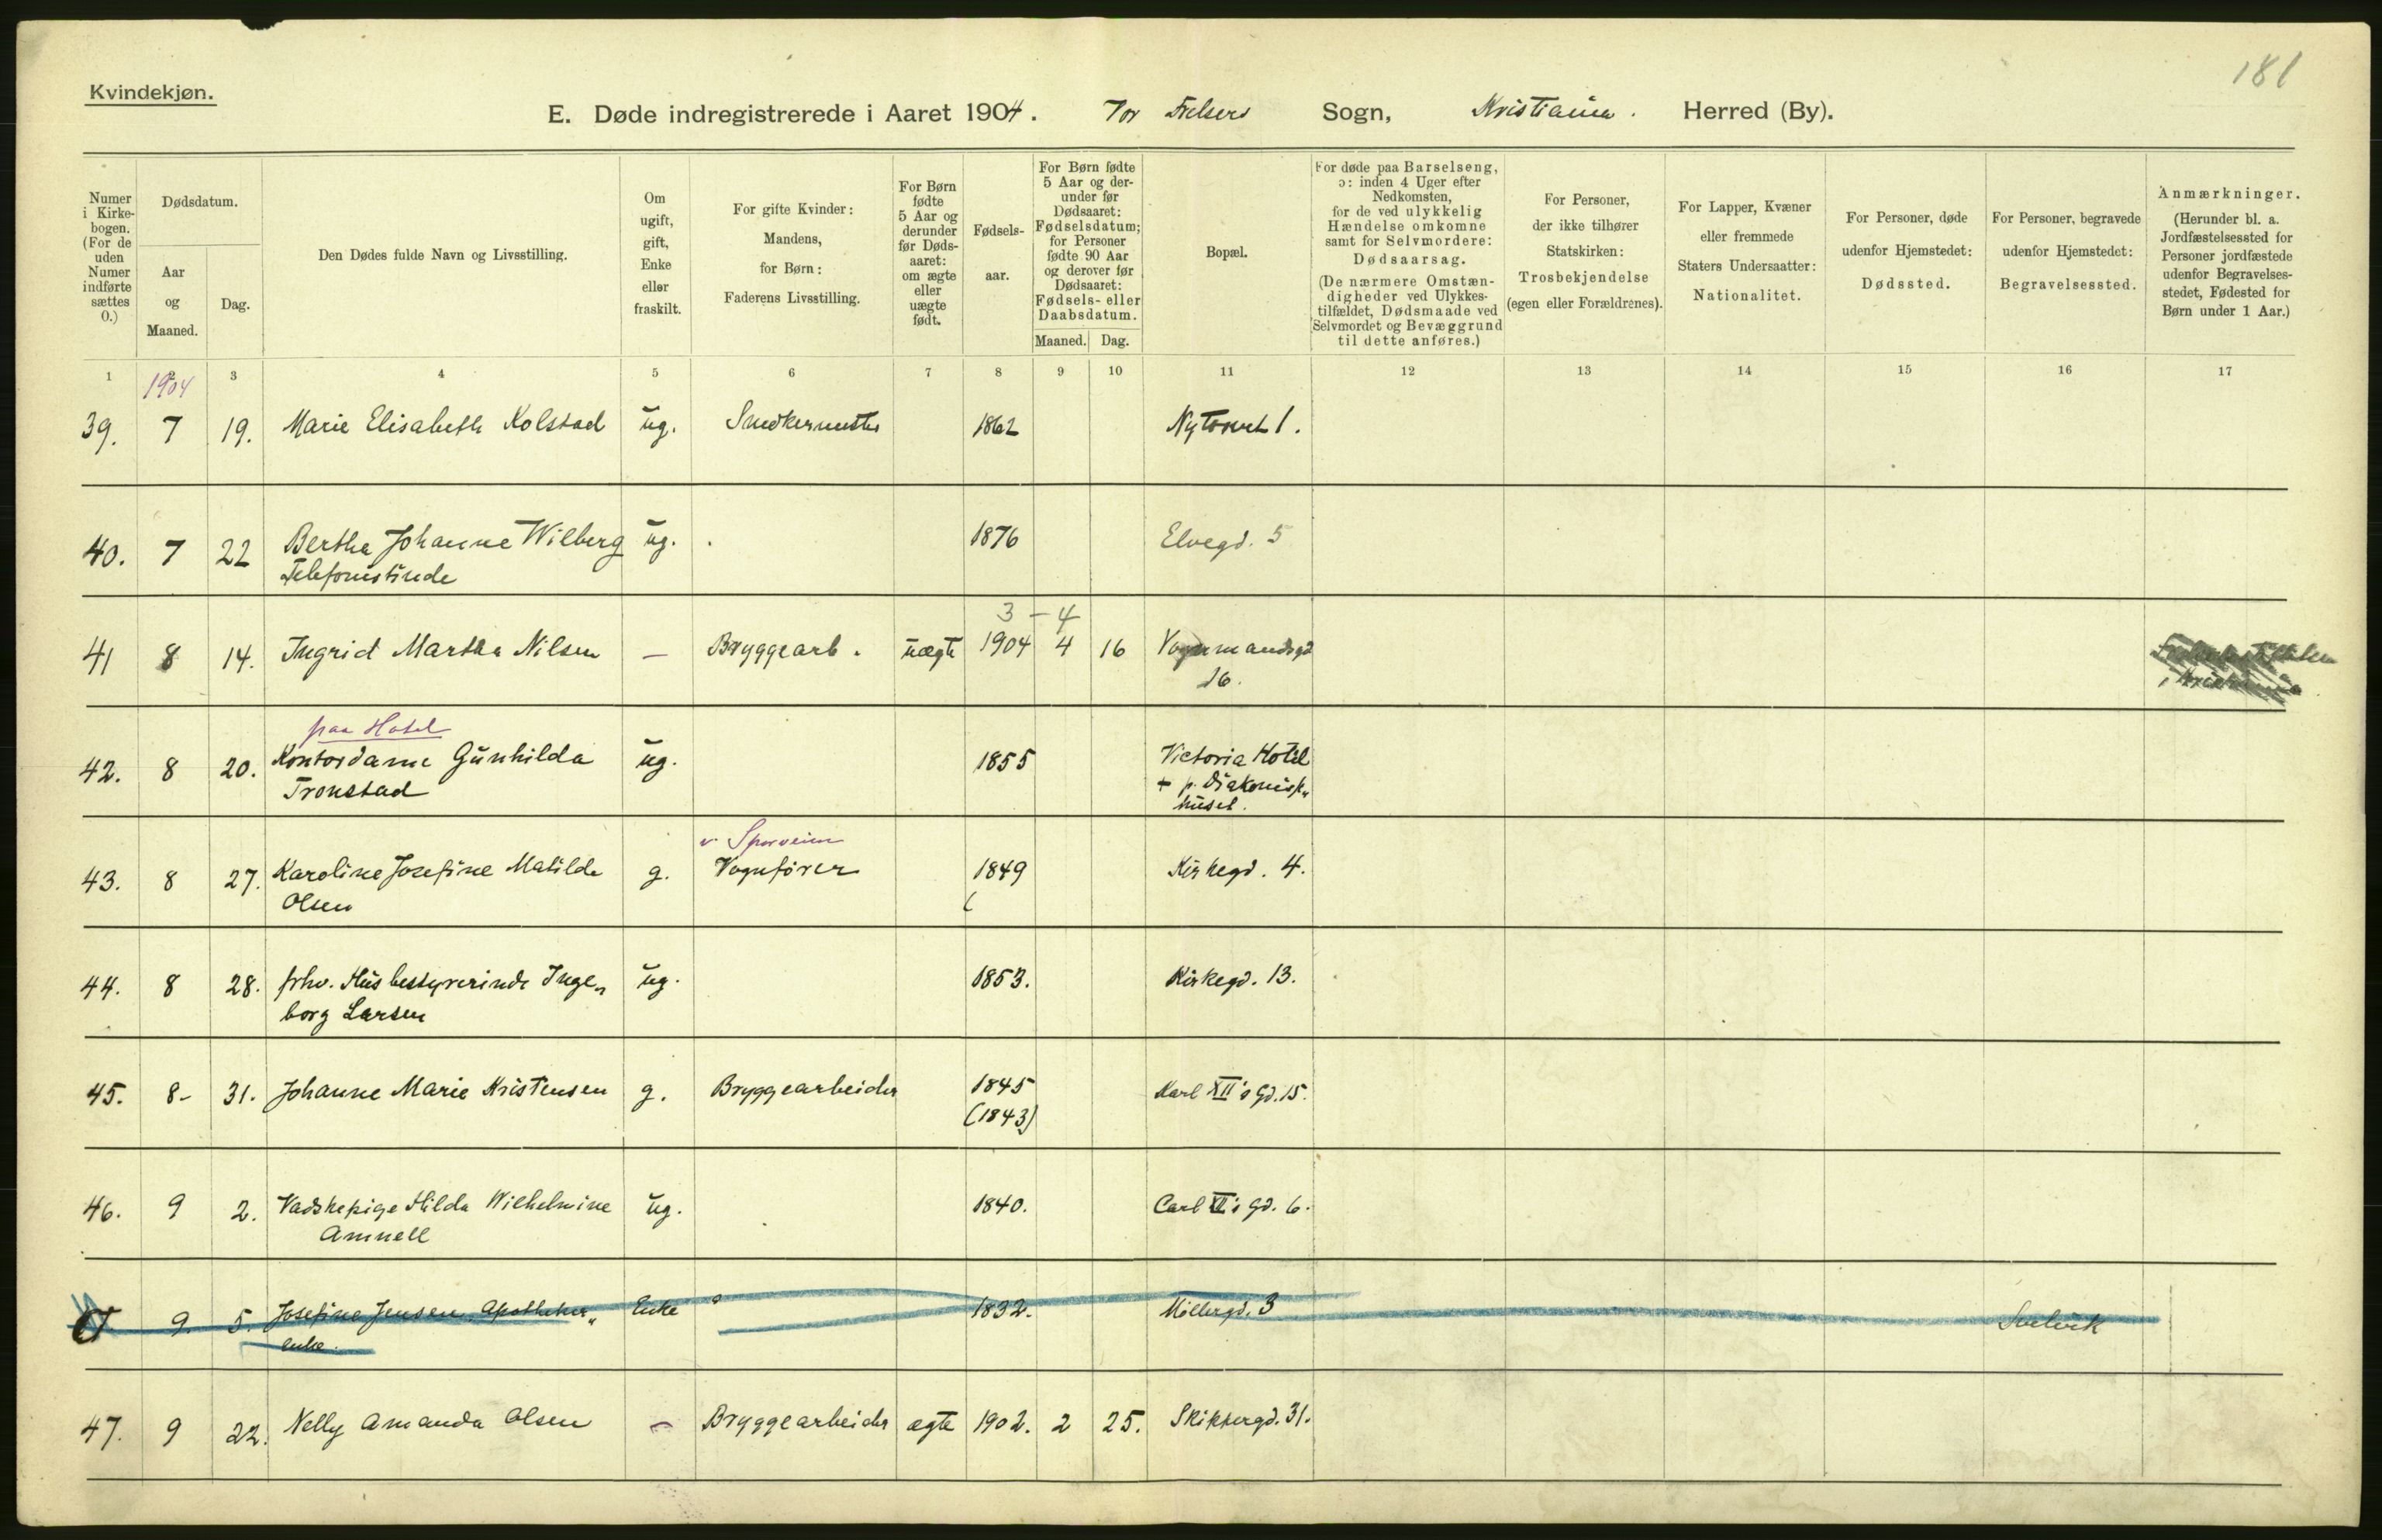 181
Kvindekjøn.
E. Døde indregistrerede i Aaret 1904. Vor Frelsers Sogn, Kristiania. Herred (By).
Numer i Kirke-bogen. (For de uden Numer indførte sættes 0.)
Dødsdatum.
Aar og Maaned.
Dag.
Den Dødes fulde Navn og Livsstilling.
Om ugift, gift, Enke eller fraskilt.
For gifte Kvinder: Mandens, for Børn: Faderens Livsstilling.
For Børn fødte 5 Aar og derunder før Døds-aaret: om ægte eller uægte født.
Fødsels-aar.
For Børn fødte 5 Aar og der-under før Dødsaaret: Fødselsdatum; for Personer fødte 90 Aar og derover før Dødsaaret: Fødsels- eller Daabsdatum.
Maaned. Dag.
Bopæl.
For døde paa Barselseng, ɔ: inden 4 Uger efter Nedkomsten, for de ved ulykkelig Hændelse omkomne samt for Selvmordere: Dødsaarsag.
(De nærmere Omstæn-digheder ved Ulykkes-tilfældet, Dødsmaade ved Selvmordet og Bevæggrund til dette anføres.)
For Personer, der ikke tilhører Statskirken: Trosbekjendelse (egen eller Forældrenes).
For Lapper, Kvæner eller fremmede Staters Undersaatter: Nationalitet.
For Personer, døde udenfor Hjemstedet: Dødssted.
For Personer, begravede udenfor Hjemstedet: Begravelsessted.
Anmærkninger. (Herunder bl. a. Jordfæstelsessted for Personer jordfæstede udenfor Begravelses-stedet, Fødested for Børn under 1 Aar.)
1 2 3 4 5 6 7 8 9 10 11 12 13 14 15 16 17
1904
39. 7 19. Marie Elisabeth Kolstad ug. Snedkermester 1862 Nytorvet 1.
40. 7 22 Bertha Johanne Wilberg ug. 1876 Elvegd. 5
Telefonistinde
3 - 4
41 8 14. Ingrid Martha Nilsen — Bryggearb. uægte 1904 4 16 Vognmandsgd
16.
paa Hotel
42. 8 20. Kontordame Gunhilda ug. 1855 Victoria Hotel
Tronstad + p. Diakoniss„
huset.
v Sporveien
43. 8 27. Karoline Josefine Matilde g. Vognfører 1849 Kirkegd. 4.
Olsen (
44. 8 28. frhv. Husbestyrerinde Inge„ ug. 1853. Kirkegd. 13.
borg Larsen
45. 8- 31. Johanne Marie Kristensen g. Bryggearbeider 1845 Karl XII's Gd. 15.
(1843)
46. 9 2. Vadskepige Hilda Wilhelmine ug. 1840. Carl XII's Gd. 6.
Amnell
9. 5. Josefine Jensen, Apotheker„ Enke 1832. Møllergd. 3 Svelvik
enke.
47. 9 22. Nelly Amanda Olsen — Bryggearbeider ægte 1902. 2 25. Skippergd. 31.